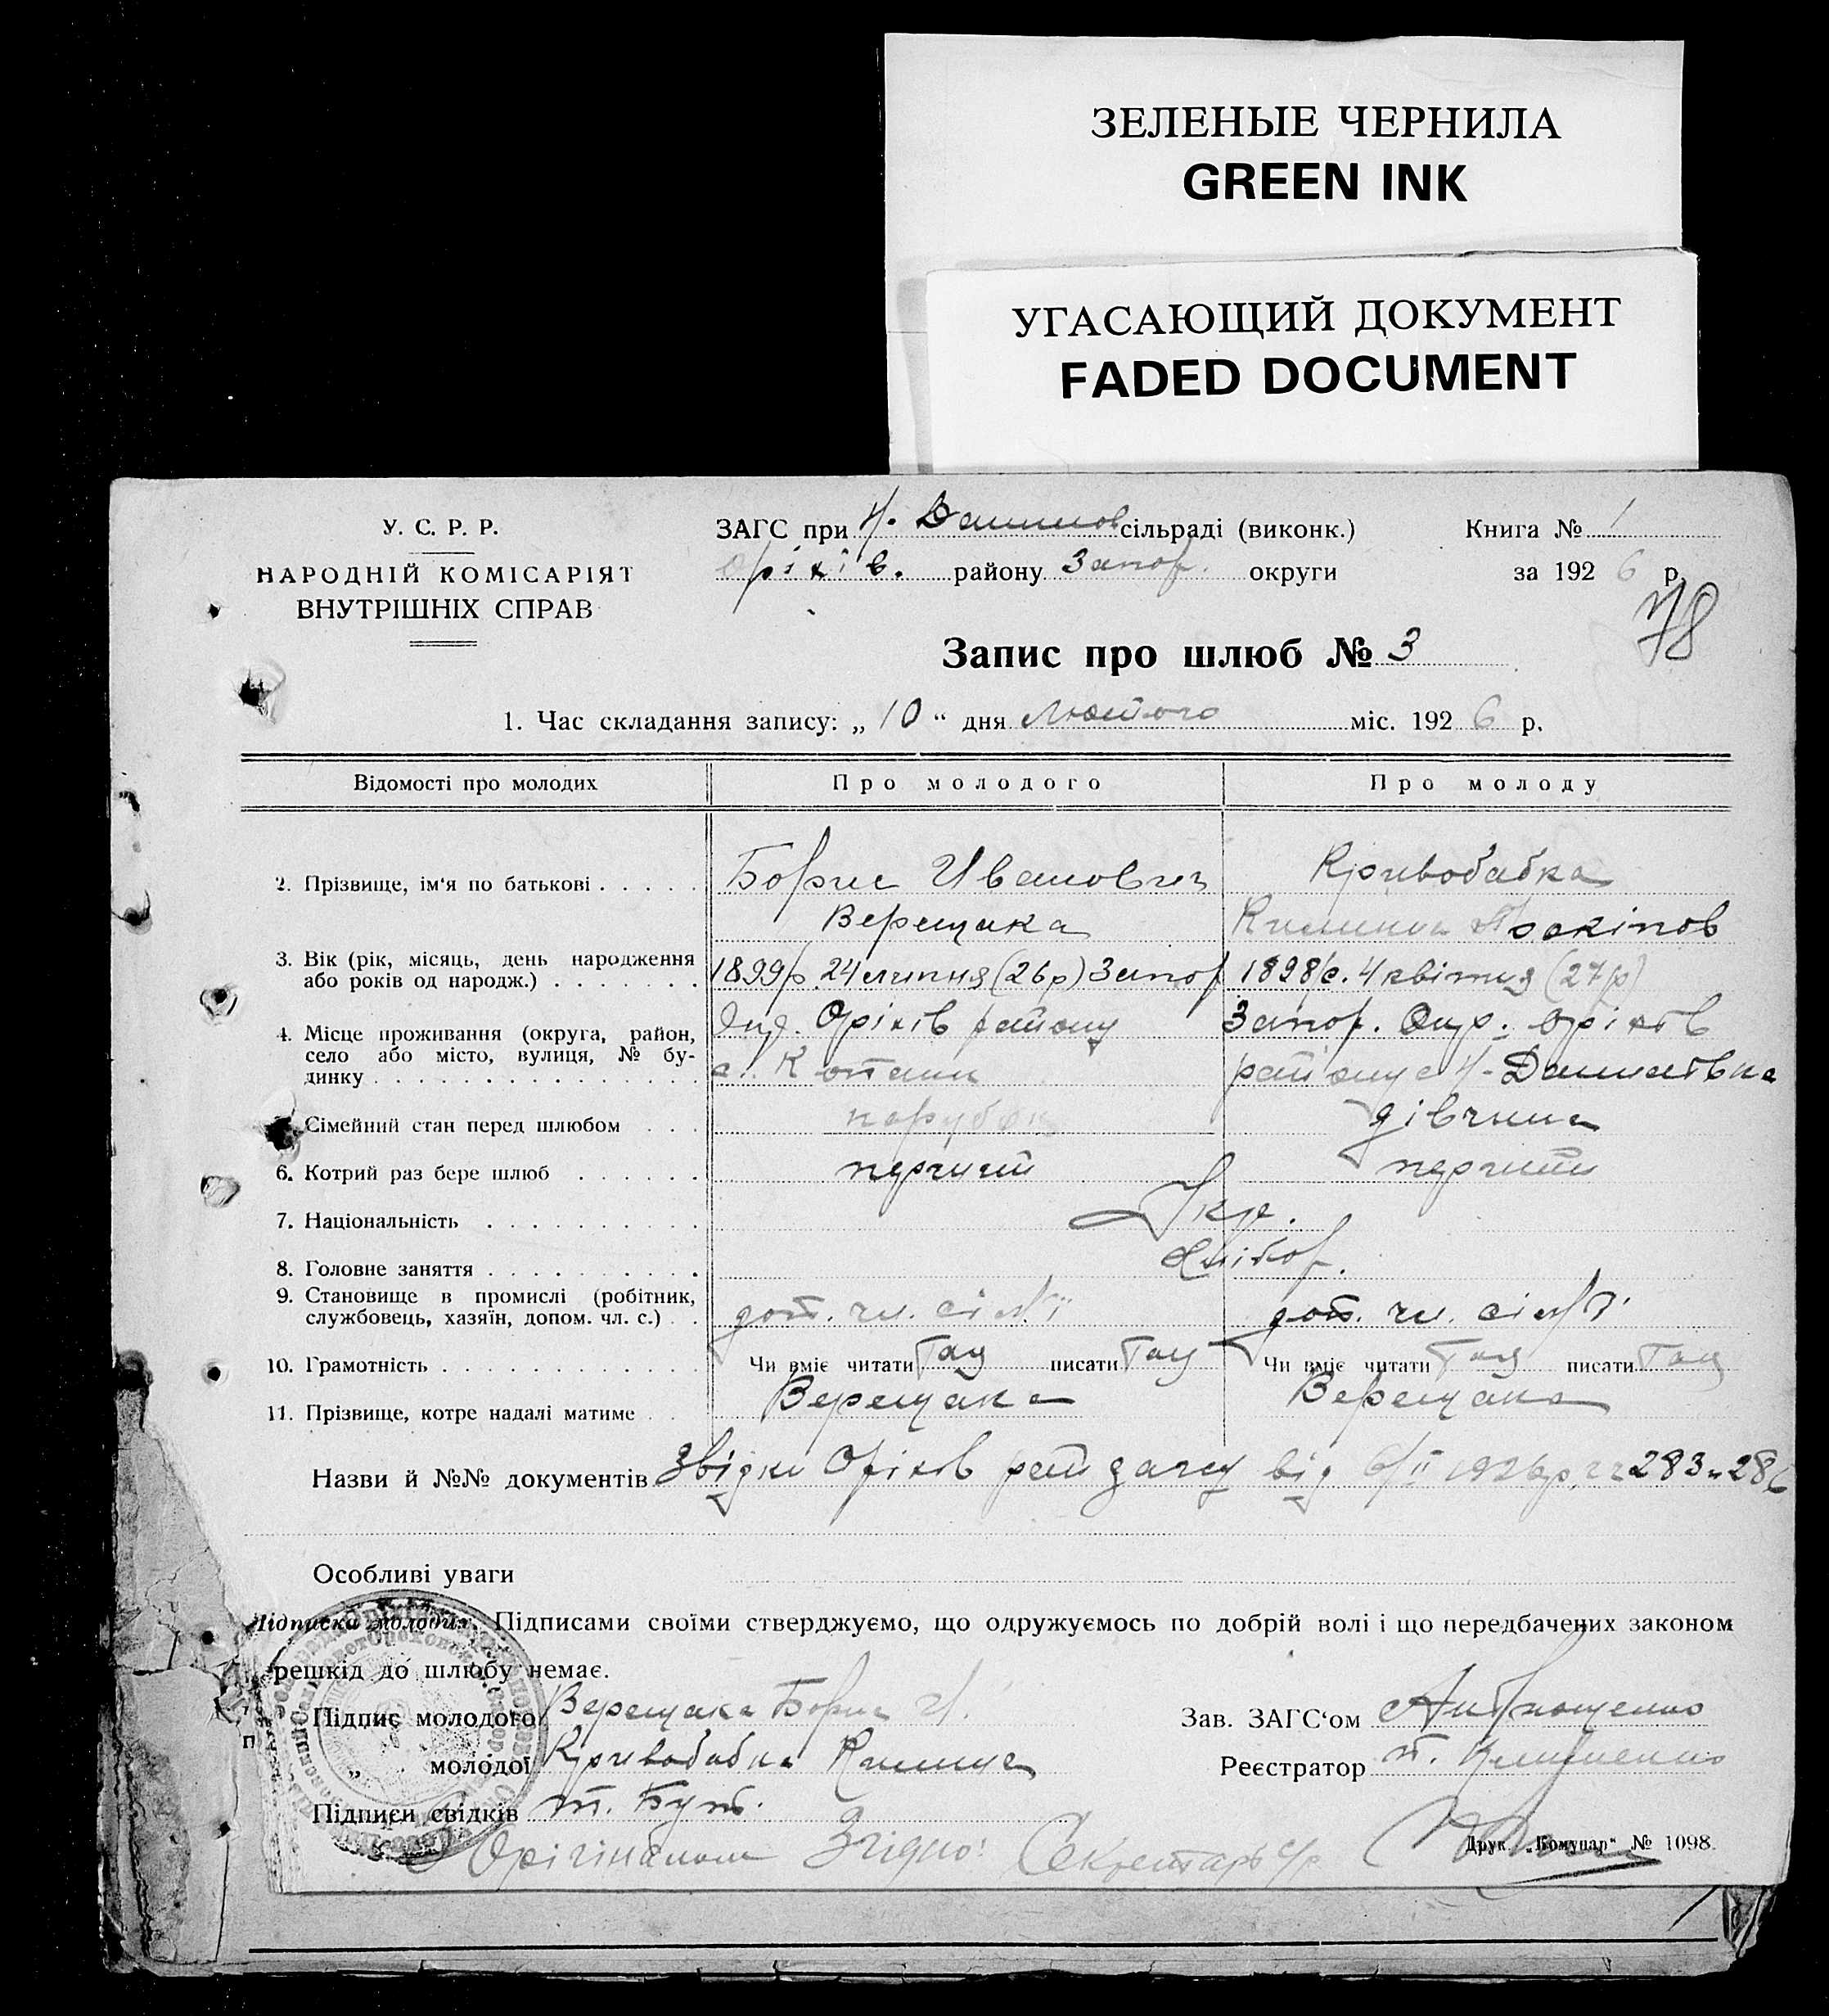 ЗЕЛЕНЫЕ ЧЕРНИЛА
GREEN INK
УГАСАЮЩИЙ ДОКУМЕНТ
FADED DOCUMENT
У. С. Р. Р.
НАРОДНІЙ КОМІСАРІЯТ
ВНУТРІШНІХ СПРАВ
ЗАГС при сільраді (виконк.) Книга № 1
Оріхів. району Запор. округи за 1926 р.
78
Запис про шлюб № 3
1. Час складання запису: „ 10 “ дня Лютого міс. 1926 р.
Відомості про молодих Про молодого Про молоду
2. Прізвище, ім'я по батькові Борис Иванович Кривобабка
Верещака
3. Вік (рік, місяць, день народження або років од народж.) 1899р. 24 липня (26р) Запор 1898р. 4 квітня (27р)
4. Місце проживання (округа, район, Оріхів району Запор. Окр. Оріхів
село або місто, вулиця, № бу- с. Копани району с
динку
Сімейний стан перед шлюбом парубок дівчина
6. Котрий раз бере шлюб перший перший
7. Національність Укр.
8. Головне заняття Хлібор.
9. Становище в промислі (робітник,
службовець, хазяїн, допом. чл. с.) доп. чл. сім'ї доп. чл. сім'ї
10. Грамотність Чи вміє читати писати Чи вміє читати писати
11. Прізвище, котре надалі матиме Верещака Верещака
Назви й №№ документів Звідки Оріхів рай загсу від 6/II 1926р. 283 и 286
Особливі уваги
Підписка молодих. Підписами своїми стверджуємо, що одружуємось по добрій волі і що передбачених законом
решкід до шлюбу немає.
Підпис молодого Верещака Борис И. Зав. ЗАГС'ом Антрощенко
„ молодої Кривобабка Реєстратор Клименко
Підписи свідків
Орігіналом Згідно: Секретарь с/р
Друк. „Комунар“ № 1098.